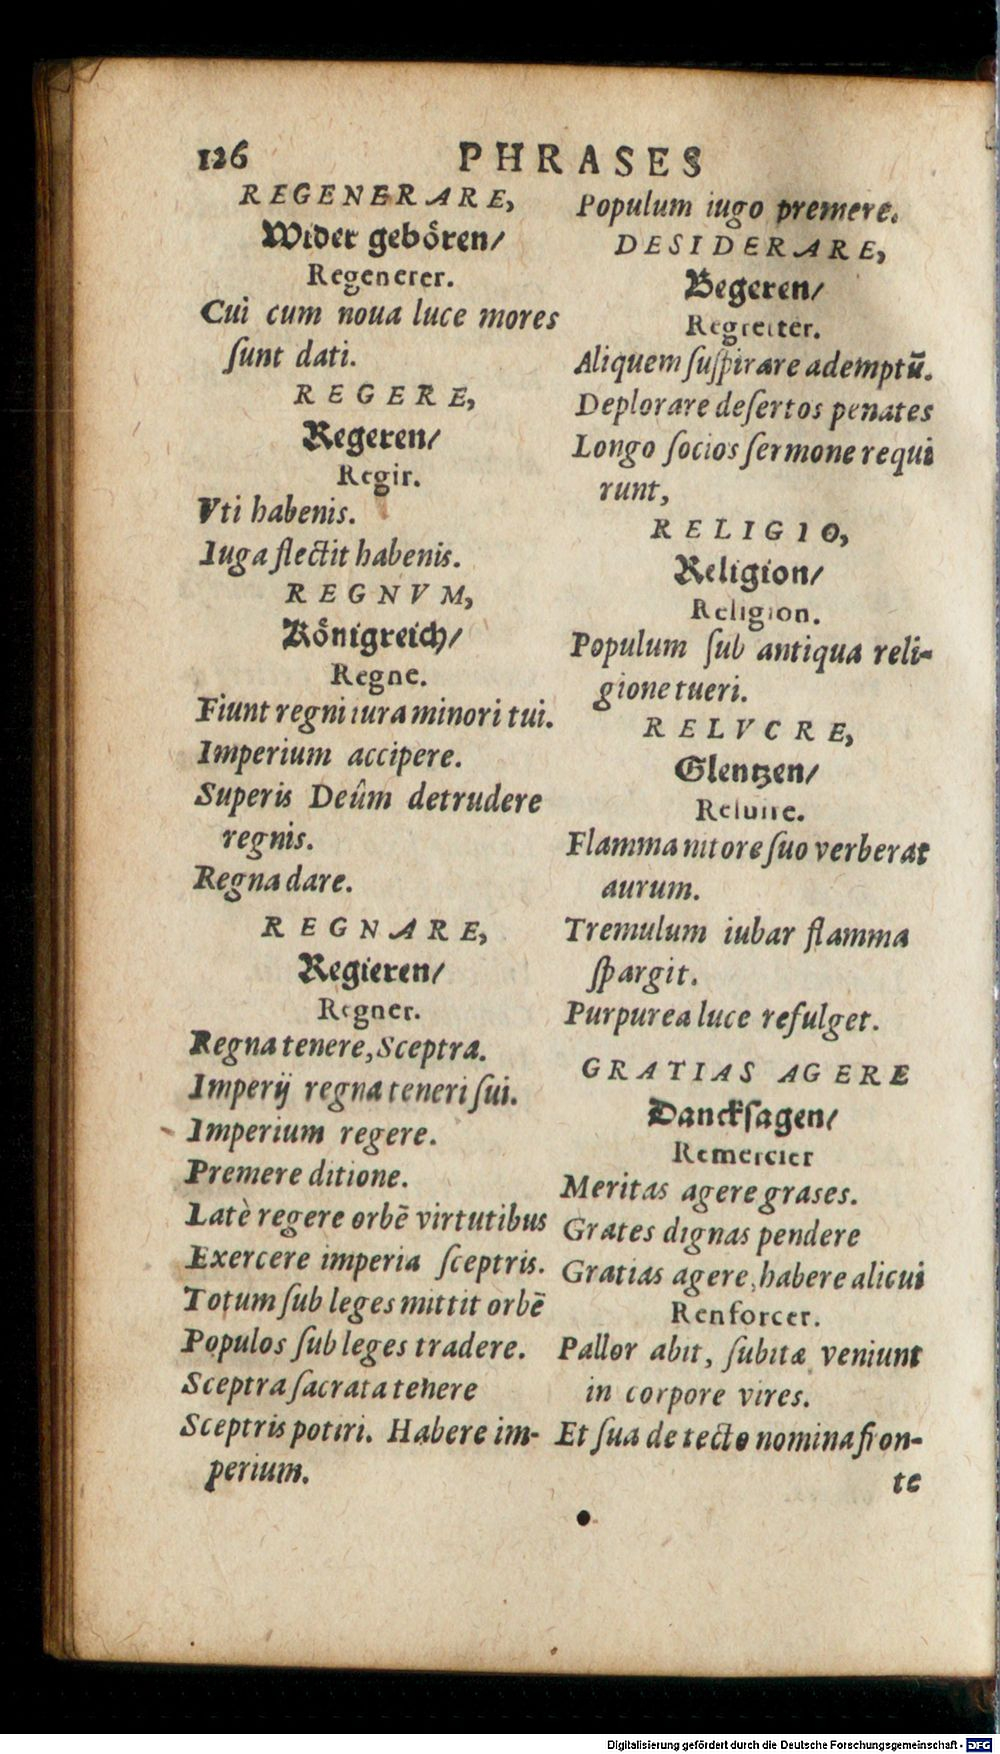 126 PHRASES
REGENERARE,
Wider gebôren/
Regenerer.
Cui cum noua luce mores
ſunt dati.
REGERE,
Regeren/
Regir.
Vti habenis.
Iuga flectit habenis.
REGNVM,
Kônigreich/
Regne.
Fiunt regni iura minori tui.
Imperium accipere.
Superis Deûm detrudere
regnis.
Regna dare.
REGNARE,
Regieren/
Regner.
Regna tenere, Sceptra.
Imperij regna teneri ſui.
Imperium regere.
Premere ditione.
Latè regere orbē virtutibus
Exercere imperia ſceptris.
Totum ſub leges mittit orbē
Populos ſub leges tradere.
Sceptra ſacrata tenere
Sceptris potiri. Habere im-
perium.
Populum iugo premere.
DESIDERARE,
Begeren/
Regretter.
Aliquem ſuſpirare ademptū.
Deplorare deſertos penates
Longo ſocios ſermone requi
runt,
RELIGIO,
Religion/
Religion.
Populum ſub antiqua reli-
gione tueri.
RELVCRE,
Glentzen/
Reluire.
Flamma nitore ſuo verberat
aurum.
Tremulum iubar flamma
ſpargit.
Purpurea luce refulget.
GRATIAS AGERE
Danckſagen/
Remercier
Meritas agere grases.
Grates dignas pendere
Gratias agere, habere alicui
Renforcer.
Pallor abit, ſubitæ veniunt
in corpore vires.
Et ſua de tecto nomina fron-
te
Digitalisierung gefördert durch die Deutsche Forschungsgemeinschaft - DFG